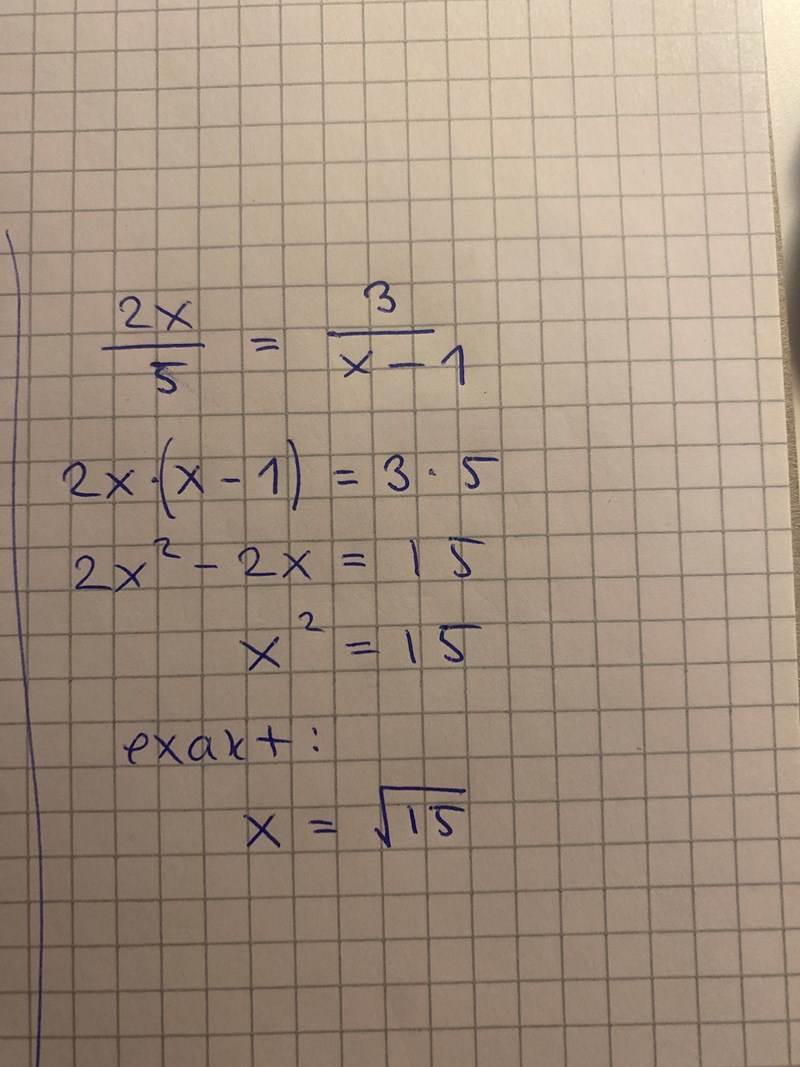 2x/5 = 3/(x - 1)
2x·(x - 1) = 3·5
2x² - 2x = 15
x² = 15
exakt:
x = √15